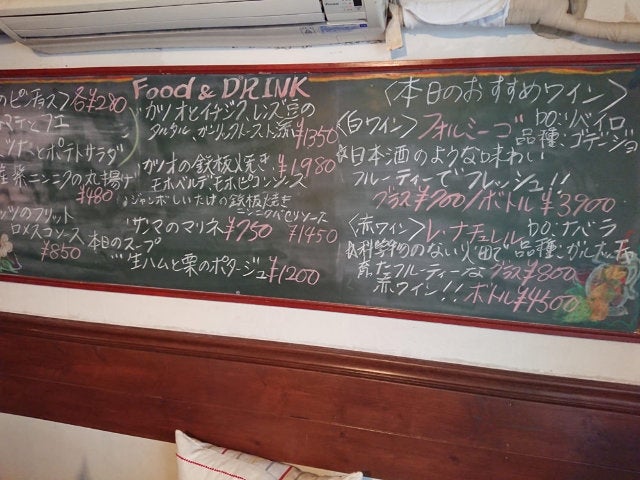 Food & DRINK
のピンチョス〉各¥280
ポテトサラダ
ニンニクの丸揚げ
¥480
のフリット
ロメスコソース
¥850
カツオとイチジク、レンズ豆の
タルタル、ガーリックトースト添え
¥1350
カツオの鉄板焼き ¥1,980
モホベルデ、モホピコンソース
ジャンボしいたけの鉄板焼き
ニンニクパセリソース
サンマのマリネ ¥750 ¥1450
本日のスープ
生ハムと栗のポタージュ ¥1200
〈本日のおすすめワイン〉
〈白ワイン〉フォルミーゴ DO:リベイロ
品種:ゴデージョ
日本酒のような味わい
フルーティーでフレッシュ!!
グラス¥700/ボトル¥3,900
〈赤ワイン〉レ・ナチュレル DO:ナバラ
のない火田で 品種:ガルナッチャ
育ったフルーティーな グラス¥800
赤ワイン!! ボトル¥4500